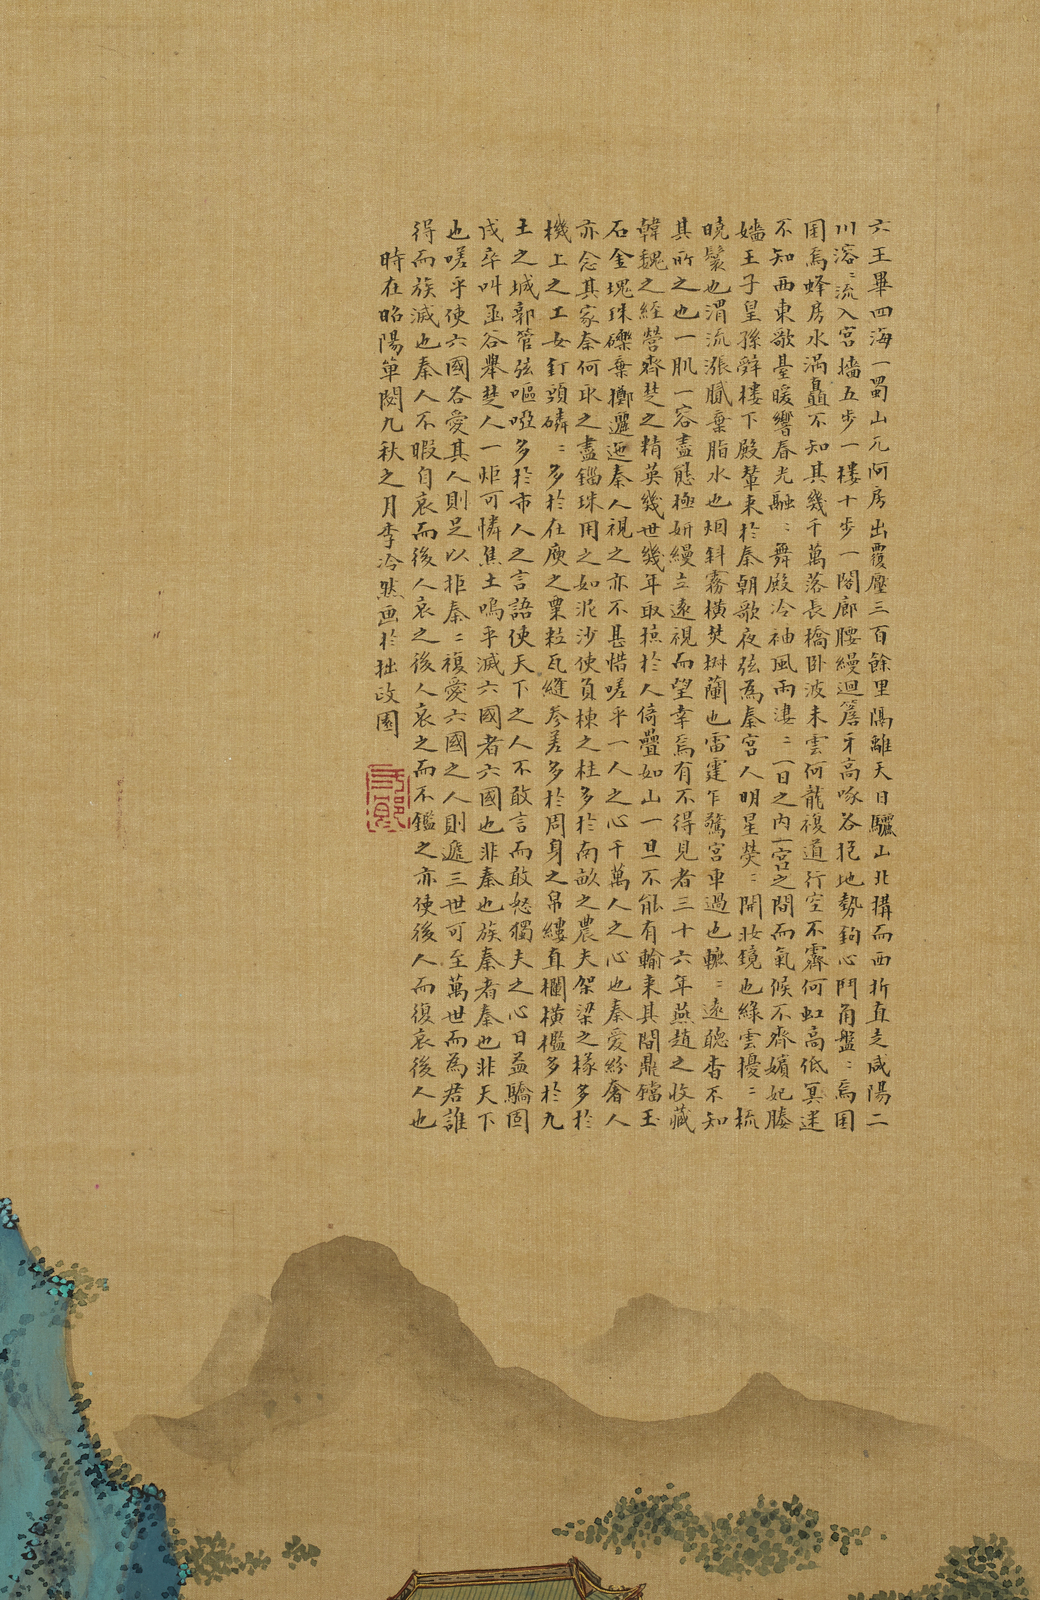 六王畢四海一蜀山兀阿房出覆壓三百餘里隔離天日驪山北構而西折直走咸陽二
川溶〻流入宮墻五步一樓十步一閣廊腰縵迴簷牙高啄各抱地勢鉤心鬥角盤〻焉囷
囷焉蜂房水渦矗不知其幾千萬落長橋臥波未雲何龍複道行空不霽何虹高低冥迷
不知西東歌臺暖響春光融〻舞殿冷袖風雨淒〻一日之內一宮之間而氣候不齊嬪妃媵
嬙王子皇孫辭樓下殿輦來於秦朝歌夜弦為秦宮人明星熒〻開妝鏡也綠雲擾〻梳
曉鬟也渭流漲膩棄脂水也烟斜霧橫焚椒蘭也雷霆乍驚宮車過也轆〻遠聽杳不知
其所之也一肌一容盡態極妍縵立遠視而望幸焉有不得見者三十六年燕趙之收藏
韓魏之經營齊楚之精英幾世幾年取掠於人倚疊如山一旦不能有輸來其間鼎鐺玉
石金塊珠礫棄擲邐迤秦人視之亦不甚惜嗟乎一人之心千萬人之心也秦愛紛奢人
亦念其家奈何取之盡錙珠用之如泥沙使負棟之柱多於南畝之農夫架梁之椽多於
機上之工女釘頭磷〻多於在庾之粟粒瓦縫參差多於周身之帛縷直欄橫檻多於九
土之城郭管弦嘔啞多於市人之言語使天下之人不敢言而敢怒獨夫之心日益驕固
戍卒叫函谷舉楚人一炬可憐焦土嗚乎滅六國者六國也非秦也族秦者秦也非天下
也嗟乎使六國各愛其人則足以拒秦〻複愛六國之人則遞三世可至萬世而為君誰
得而族滅也秦人不暇自哀而後人哀之後人哀之而不鑑之亦使後人而復哀後人也
時在昭陽單閼九秋之月李泠然画於拙政園